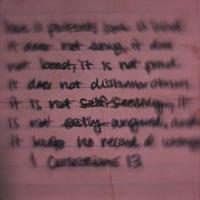 love is patient, love is kind
it does not envy, it does
not boast, it is not proud
it does not dishonor others
it is not self-seeking, it
is not easily angered, and
it keeps no record of wrongs
1 Corinthians 13